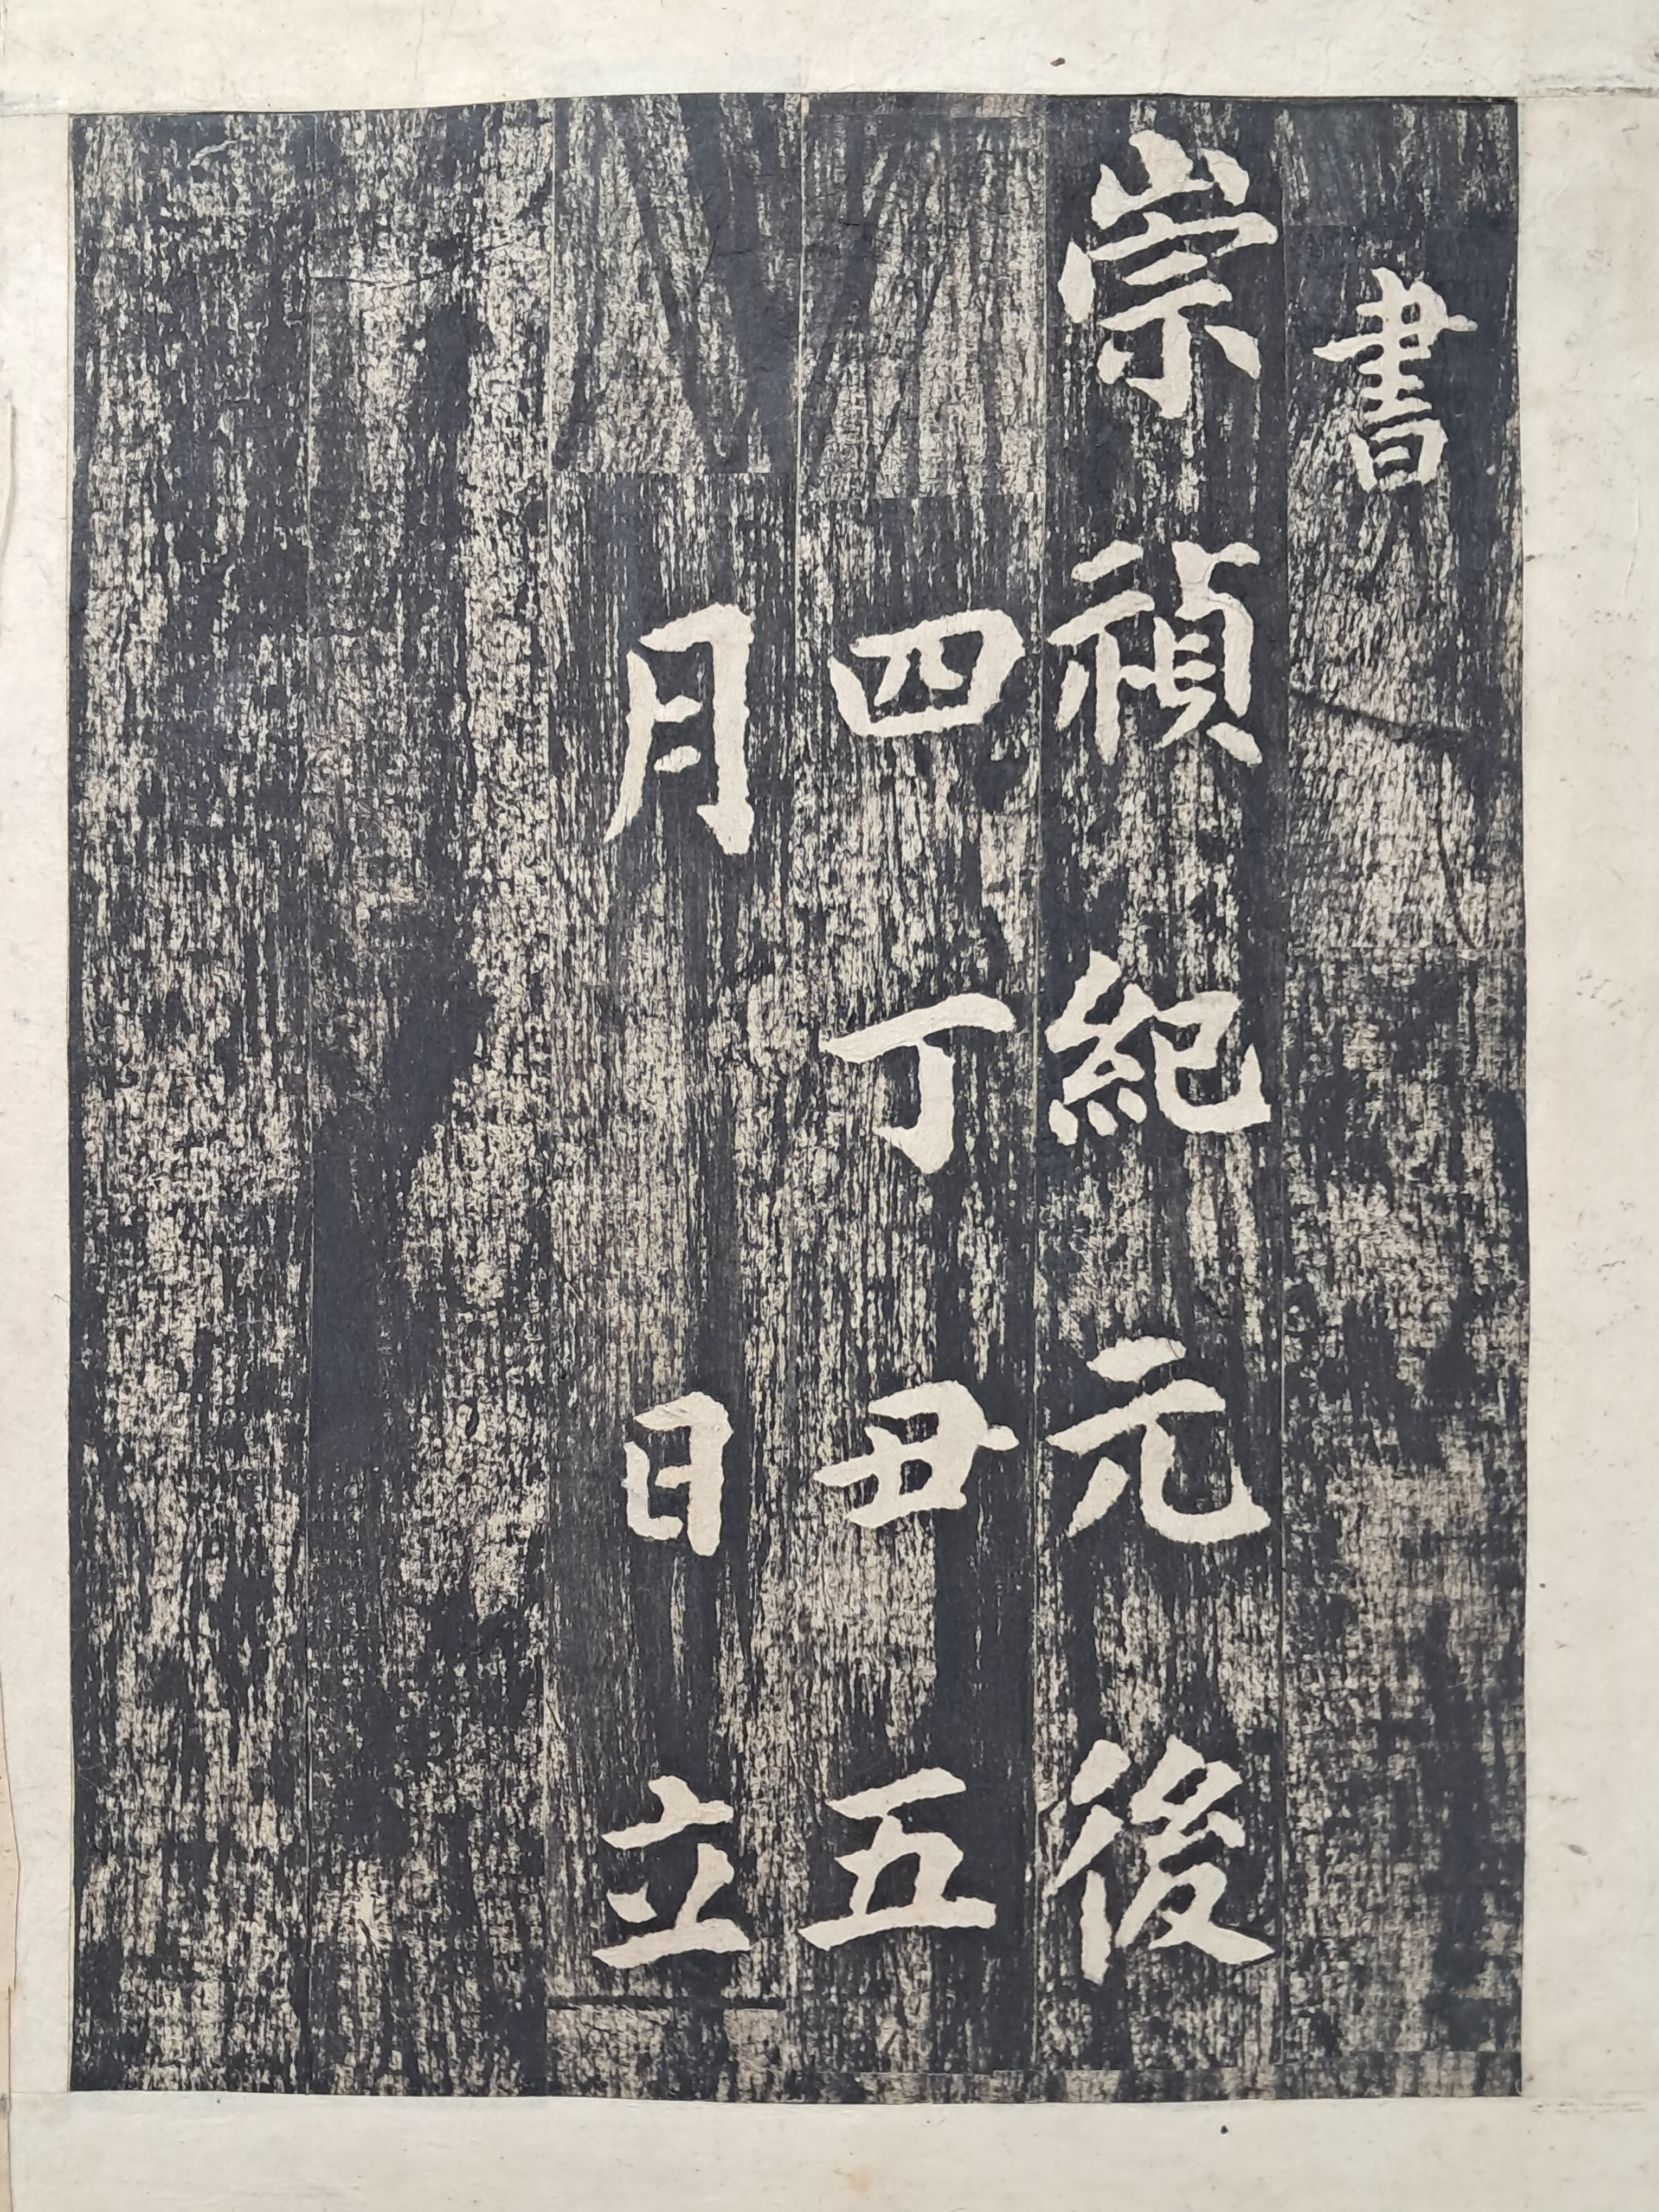 書
崇禎紀元後
四丁丑五
月日立